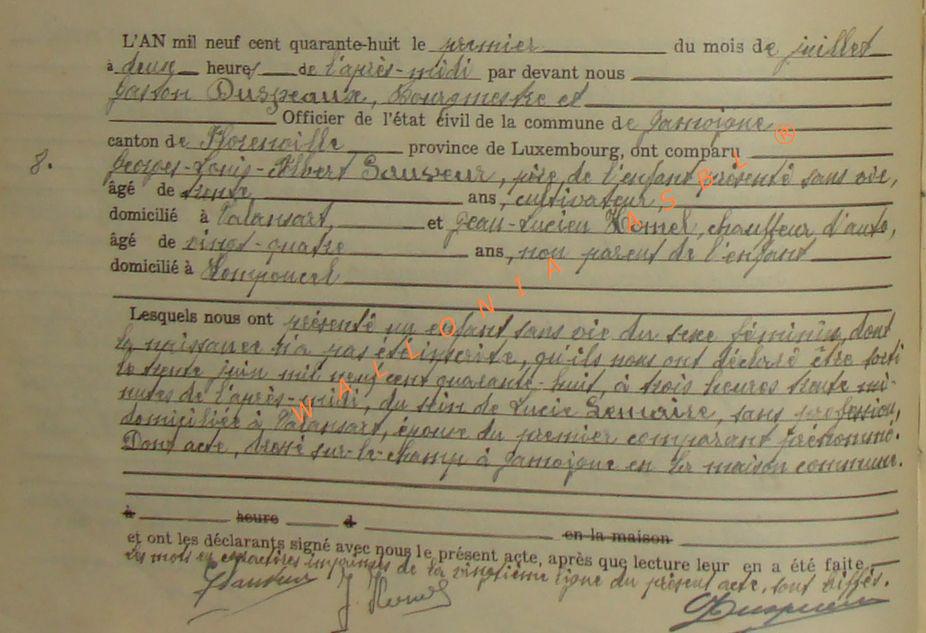 L'AN mil neuf cent quarante-huit le premier du mois de juillet
à deux heures de l'après-midi par devant nous
Gaston Duspeaux, Bourgmestre et
Officier de l'état civil de la commune de Jamoigne
canton de Florenville province de Luxembourg, ont comparu
8. Georges-Louis-Albert Sauveur, père de l'enfant présenté sans vie,
âgé de trente ans, cultivateur,
domicilié à Valansart, et Jean-Lucien Homel, chauffeur d'auto,
âgé de vingt-quatre ans, non parent de l'enfant
domicilié à
Lesquels nous ont présenté un enfant sans vie du sexe féminin, dont
la naissance n'a pas été inscrite, qu'ils nous ont déclaré être sorti
le trente juin mil neuf cent quarante-huit, à trois heures trente mi-
nutes de l'après-midi, du sein de Lucie Lemaire, sans profession,
domiciliée à Valansart, épouse du premier comparant prénommé.
Dont acte, dressé sur-le-champ à Jamoigne en la maison commune.
à heure d en la maison
et ont les déclarants signé avec nous le présent acte, après que lecture leur en a été faite.
Les mots en caractères imprimés de la vingtième ligne du présent acte, sont biffés.
WALLONIA ASBL ®